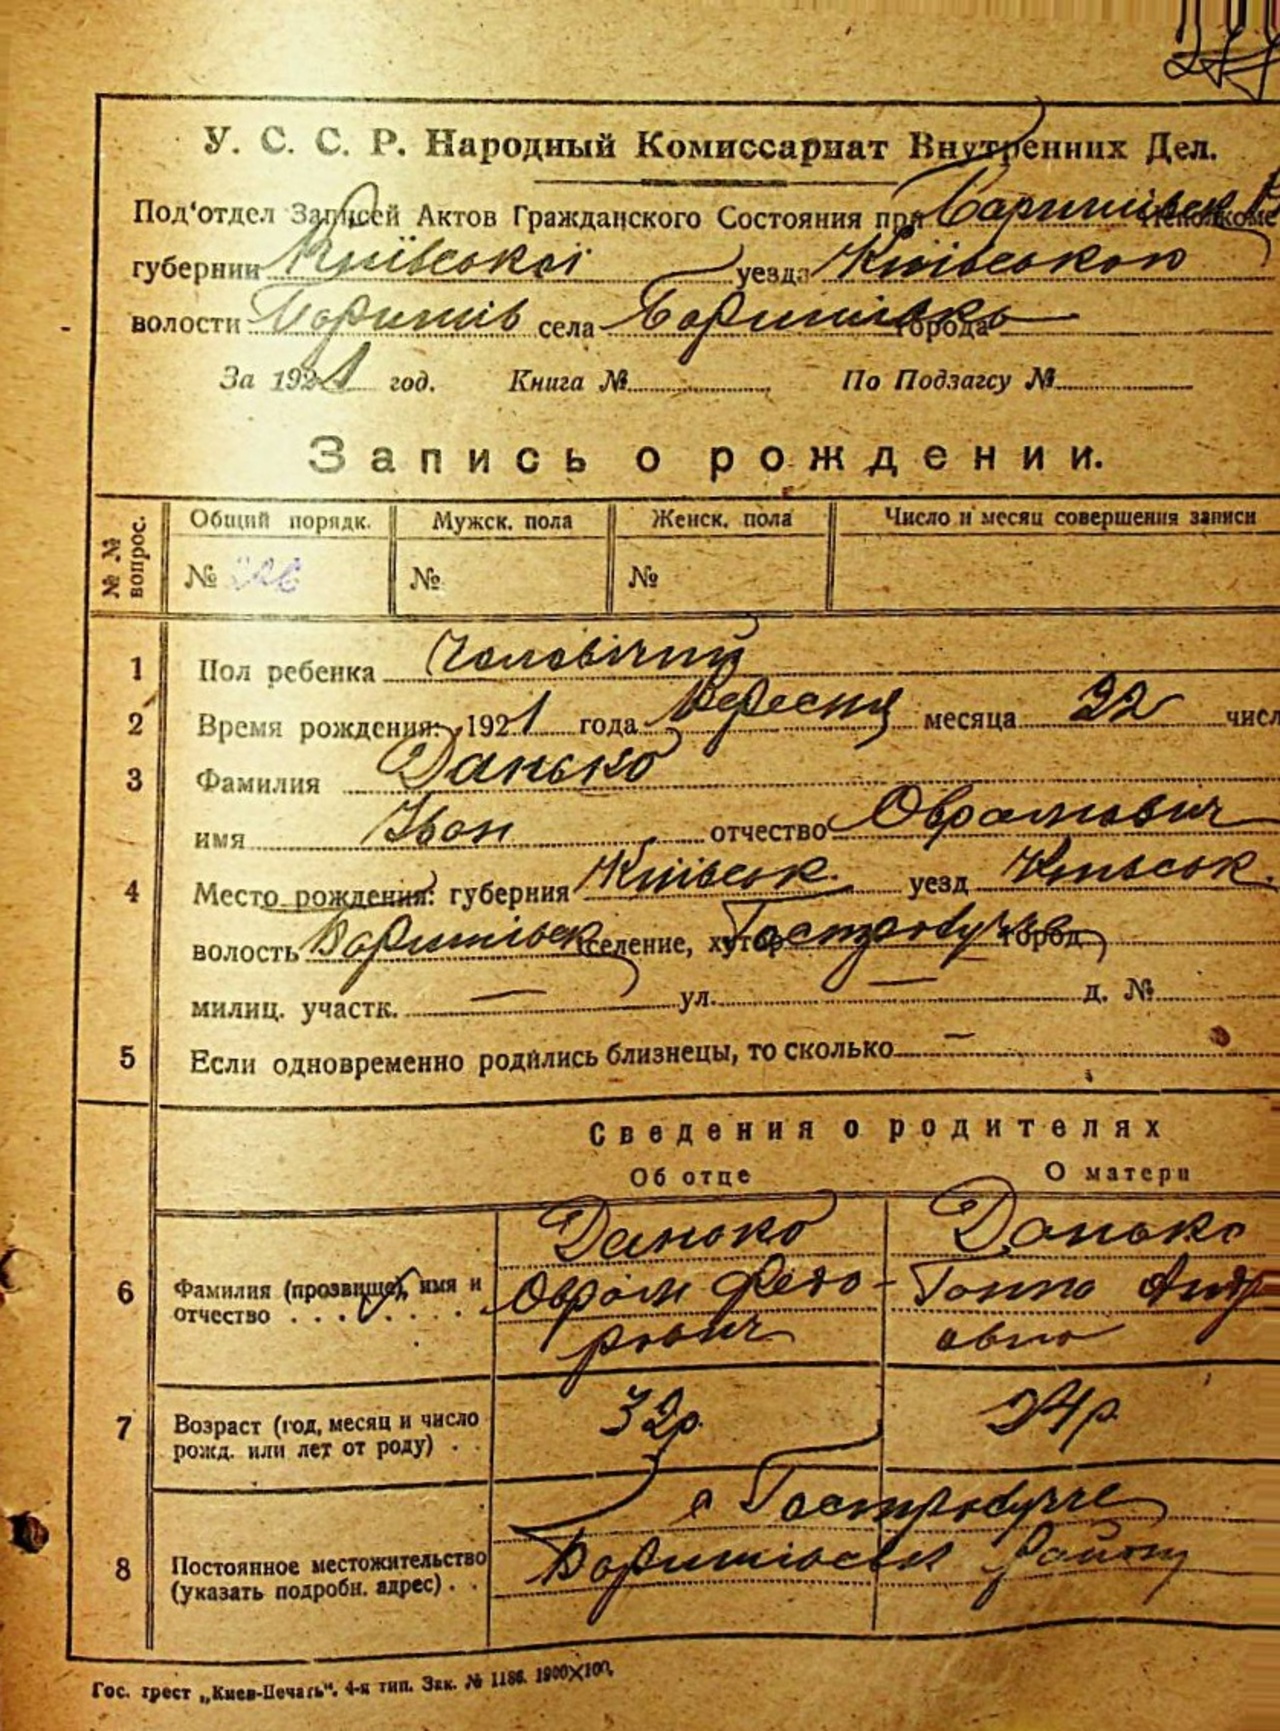 У. С. С. Р. Народный Комиссариат Внутренних Дел.
Под'отдел Записей Актов Гражданского Состояния при Баришівськ Исполкоме
губернии Київської уезда Київського
волости Баришів села Баришівка города
За 1921 год. Книга № По Подзагсу №
Запись о рождении.
№№ вопрос. Общий порядк. Мужск. пола Женск. пола Число и месяц совершения записи
№ № №
1 Пол ребенка Чоловічий
2 Время рождения: 1921 года Вересня месяца 22 числ
3 Фамилия Данько
имя Іван отчество Оврамович
4 Место рождения: губерния Київськ. уезд Київськ.
волость Баришівськ селение, хутор Гостролуччє город
милиц. участк. — ул. — д. №
5 Если одновременно родились близнецы, то сколько —
Сведения о родителях
Об отце О матери
Данько Данько
6 Фамилия (прозвище), имя и отчество . . . . . . . Оврам Федо- Ганна Андр
рович овна
7 Возраст (год, месяц и число рожд. или лет от роду) . . 32р. 24р.
с Гостролуччє
8 Постоянное местожительство (указать подробн. адрес) . . Баришівськ району
Гос. трест „Киев-Печать“. 4-я тип. Зак. № 1186. 1900×100.